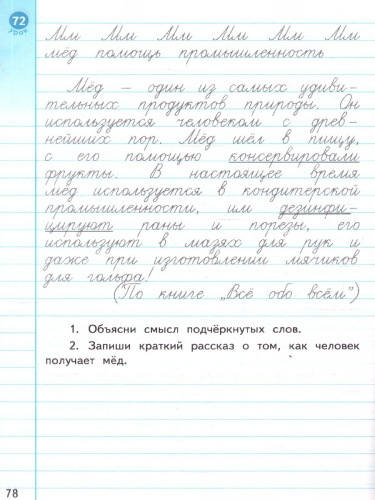 72
урок
Мм Мм Мм Мм Мм Мм
мёд помощь промышленность
Мёд — один из самых удиви-
тельных продуктов природы. Он
используется человеком с древ-
нейших пор. Мёд шёл в пищу,
с его помощью консервировали
фрукты. В настоящее время
мёд используется в кондитерской
промышленности, им дезинфи-
цируют раны и порезы, его
используют в мазях для рук и
даже при изготовлении мячиков
для гольфа!
(По книге „Всё обо всём")
1. Объясни смысл подчёркнутых слов.
2. Запиши краткий рассказ о том, как человек
получает мёд.
78